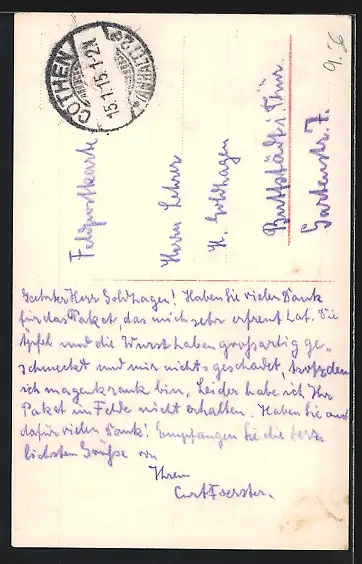 CÖTHEN
(ANHALT) 2a
15.1.15.1-2N
9.26
Feldpostkarte
Herrn Lehrer
H. Goldhagen
Buttstädt i. Thür.
Gartenstr. 7.
Geehrter Herr Goldhagen! Haben Sie vielen Dank
für das Paket, das mich sehr erfreut hat. Die
Äpfel und die Wurst haben großartig ge-
schmeckt und mir nichts geschadet, trotzdem
ich magenkrank bin. Leider habe ich Ihr
Paket im Felde nicht erhalten. Haben Sie auch
dafür vielen Dank! Empfangen Sie die herz-
lichsten Grüße von
Ihrem
Curt Foerster.